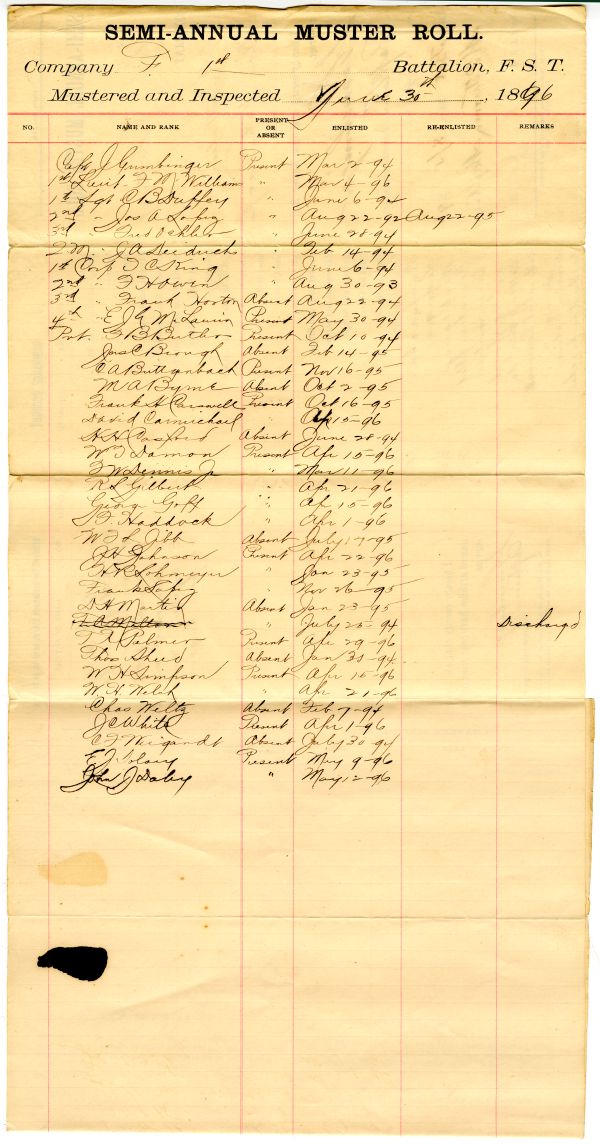 SEMI-ANNUAL MUSTER ROLL.
Company F. 1st Battalion, F. S. T.
Mustered and Inspected June 30th, 1896
NO. NAME AND RANK PRESENT OR ABSENT ENLISTED RE-ENLISTED REMARKS
Capt J Gumbinger Present Mar 2-94
1st Lieut. F M Williams " Mar 4-96
1st Sgt C B Duffey " June 6-94
2nd " Jos A Lopez " Aug 22-92 Aug 22-95
3rd " Fred Ochler " June 28-94
2. M. " J A Deidrich " Feb 14-94
1st Corp F C King " June 6-94
2nd " F Howin " Aug 30-93
3rd " Frank Horton Absent Aug 22-94
4th " E G McLaurin Present May 30-94
Pvt. F B Butler Present Oct 10-94
Jas C Brough Absent Feb 14-95
C A Buttgenbach Present Nov 16-95
M A Byrne Absent Oct 2-95
Frank H Carswell Present Oct 16-95
David Carmichael " Ap 15-96
H H Casford Absent June 28-94
W J Damon Present Apr 15-96
F W Dennis Jr " Mar 11-96
R L Gilbert " Apr 21-96
George Goff " Ap 15-96
S F Haddock " Apr 1-96
W F L Jibb Absent July 17-95
J H Johnson Present Apr 22-96
H R Lohmeyer " Jan 23-95
Frank Lopez " Nov 26-95
D H Martin Absent Jan 23-95
F A Melton " July 25-94 Discharg'd
T A Palmer Present Apr 29-96
Thos Shied Absent Jan 31-94
W H Simpson Present Apr 15-96
W H Welch " Apr 21-96
Chas Weltz Absent Feb 7-94
J C White Present Apr 1-96
C F Weigandt Absent July 30-94
E J Present May 9-96
John J Daley " May 12-96